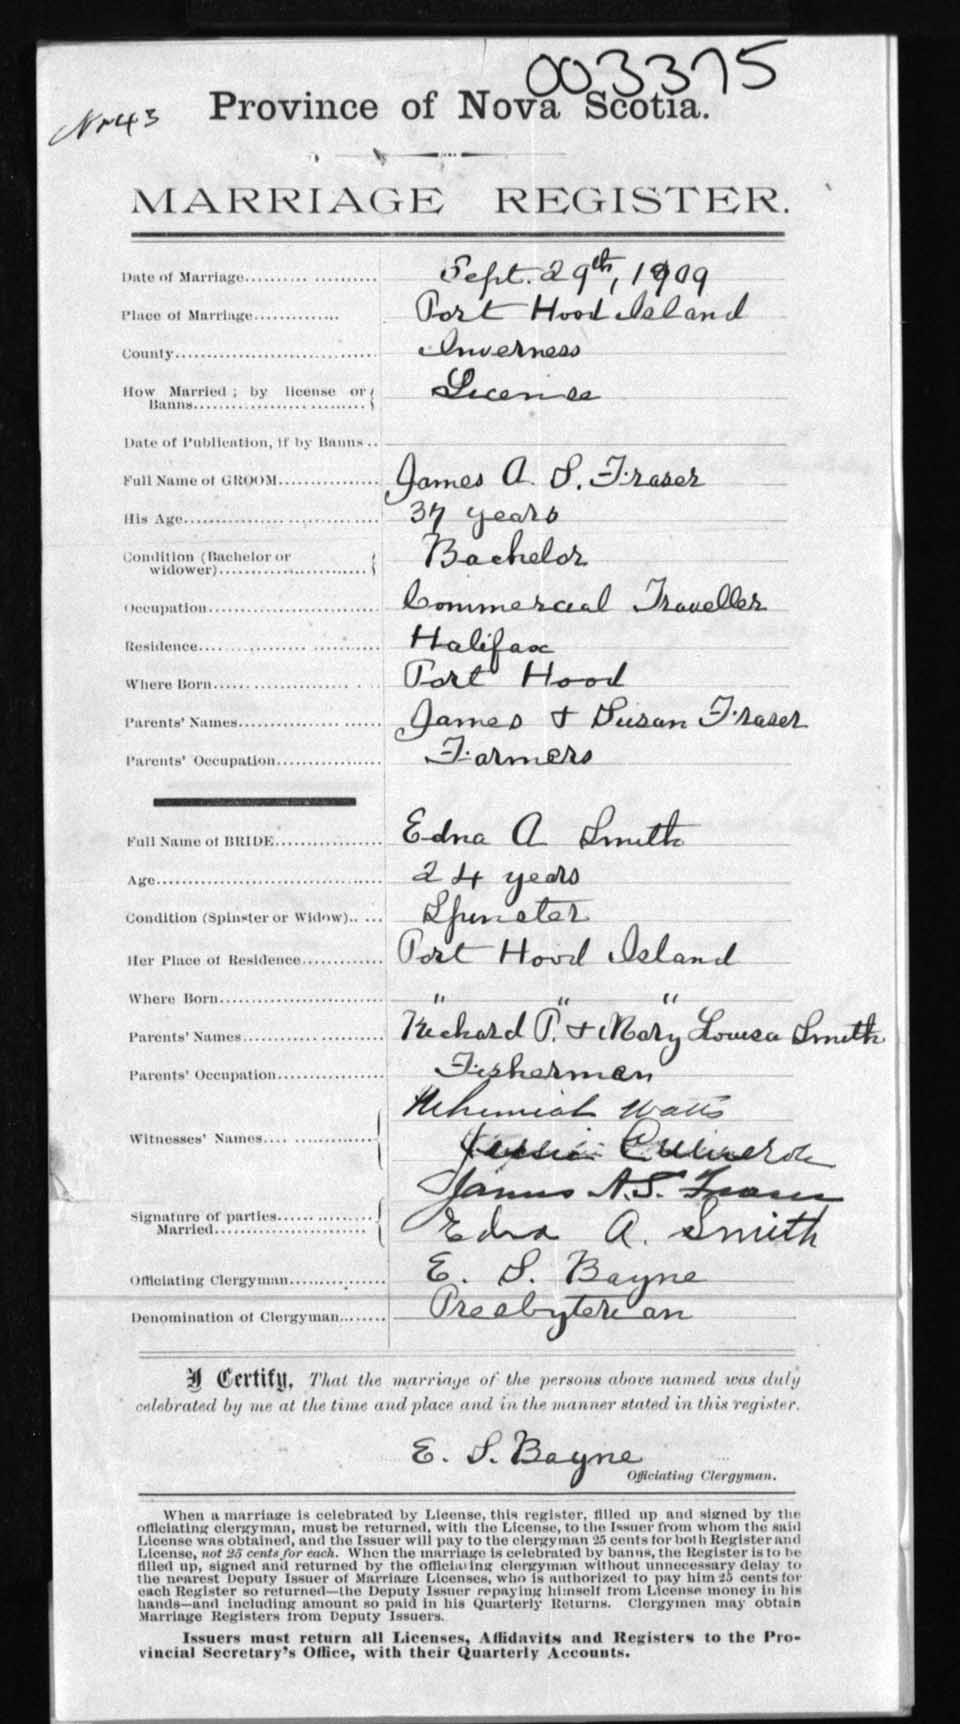 003375
No 43
Province of Nova Scotia.
MARRIAGE REGISTER.
Date of Marriage.................... Sept. 29th, 1909
Place of Marriage............. Port Hood Island
County.............................. Inverness
How Married; by license or
Banns.......................... License
Date of Publication, if by Banns..
Full Name of GROOM............... James A. S. Fraser
His Age............................. 37 years
Condition (Bachelor or
widower)........................ Bachelor
Occupation......................... Commercial Traveller
Residence......................... Halifax
Where Born........................ Port Hood
Parents' Names.................... James & Susan Fraser
Parents' Occupation................ Farmers
Full Name of BRIDE................. Edna A Smith
Age................................. 24 years
Condition (Spinster or Widow)..... Spinster
Her Place of Residence............ Port Hood Island
Where Born........................ " " "
Parents' Names.................... Richard P. & Mary Louisa Smith
Parents' Occupation................ Fisherman
Nehemiah Watts
Witnesses' Names..................
James A. S. Fraser
Signature of parties...............
Married........................ Edna A. Smith
Officiating Clergyman.............. E. S. Bayne
Denomination of Clergyman........ Presbyterian
I Certify, That the marriage of the persons above named was duly
celebrated by me at the time and place and in the manner stated in this register.
E. S. Bayne
Officiating Clergyman.
When a marriage is celebrated by License, this register, filled up and signed by the
officiating clergyman, must be returned, with the License, to the Issuer from whom the said
License was obtained, and the Issuer will pay to the clergyman 25 cents for both Register and
License, not 25 cents for each. When the marriage is celebrated by banns, the Register is to be
filled up, signed and returned by the officiating clergyman without unnecessary delay to
the nearest Deputy Issuer of Marriage Licenses, who is authorized to pay him 25 cents for
each Register so returned—the Deputy Issuer repaying himself from License money in his
hands—and including amount so paid in his Quarterly Returns. Clergymen may obtain
Marriage Registers from Deputy Issuers.
Issuers must return all Licenses, Affidavits and Registers to the Pro-
vincial Secretary's Office, with their Quarterly Accounts.